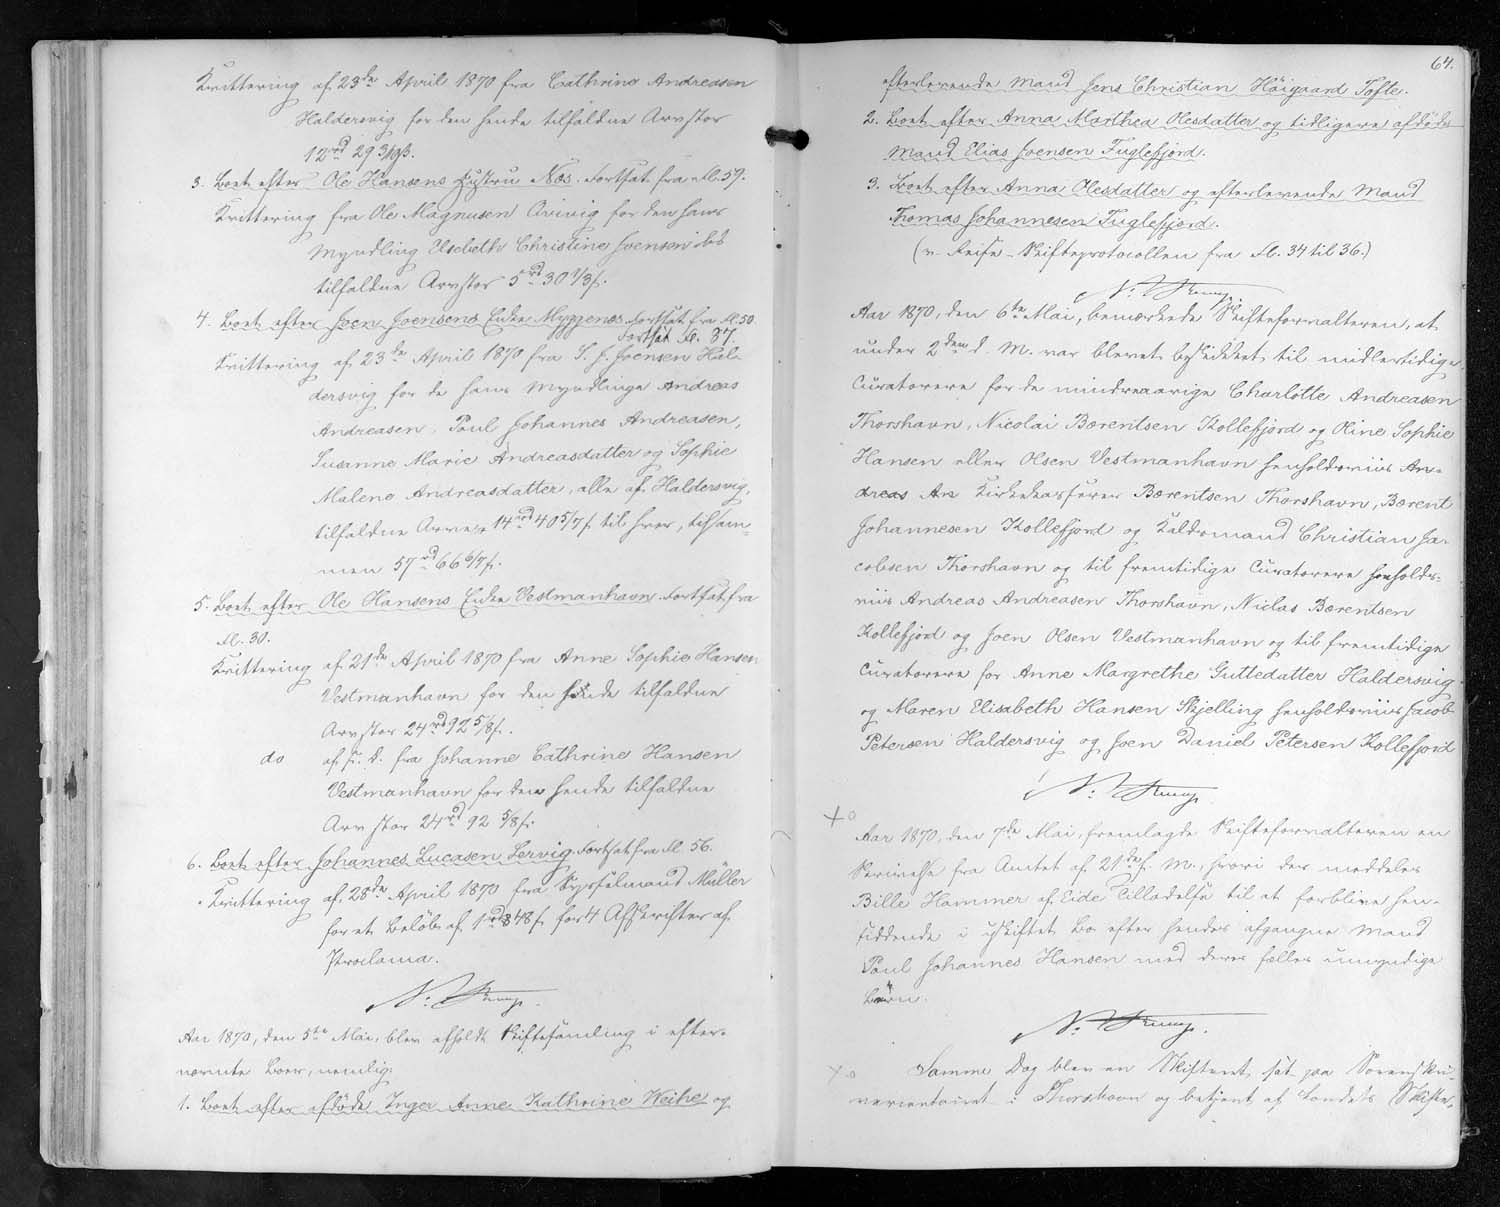 Kvittering af 23de April 1870 fra Cathrine Andreasen
Haldersvig for den hende tilfaldne Arvslor
12rd 29 3/10 ß.
3. Boet efter Ole Hansens Hustru Næs. Fortsat fra Fl. 59.
Kvittering fra Ole Magnusen Qvivig for den hans
Myndling Elsebeth Christine Joensen ibd
tilfaldne Arvslor 5rd 30 1/3 ß.
4. Boet efter Joen Joensens Enke Myggenæs. Fortsat fra Fl. 50.
Fortsat Fl. 87.
Kvittering af 23de April 1870 fra S. J. Joensen Hal-
dersvig for de hans Myndlinge Andreas
Andreasen, Poul Johannes Andreasen,
Susanne Marie Andreasdatter og Sophie
Malene Andreasdatter, alle af Haldersvig,
tilfaldne Arve, 14rd 40 5/7 ß til hver, tilsam-
men 57rd 66 6/7 ß.
5. Boet efter Ole Hansens Enke Vestmanhavn. Fortsat fra
Fl. 30.
Kvittering af 21de April 1870 fra Anne Sophie Hansen
Vestmanhavn for den hende tilfaldne
Arvslor 24rd 92 5/8 ß.
do af s. d. fra Johanne Cathrine Hansen
Vestmanhavn for den hende tilfaldne
Arvslor 24rd 92 5/8 ß.
6. Boet efter Johannes Lucasen Servig. Fortsat fra Fl. 56.
Kvittering af 28de April 1870 fra Sysselmand Müller
for et Beløb af 1rd 48 ß for 4 Afskrifter af
Proclama.
N: Krup.
Aar 1870, den 5te Mai, blev afholdt Skiftesamling i efter-
nævnte Boer, nemlig:
1. Boet efter afdøde Inger Anne Kathrine Weihe og
64.
efterlevende Mand Jens Christian Høigaard Tofte.
2. Boet efter Anna Marthea Olesdatter og tidligere afdøde
Mand Elias Joensen Fuglefjord.
3. Boet efter Anna Olesdatter og efterlevende Mand
Thomas Johannesen Fuglefjord.
(v. Reise-Skifteprotocollen fra Fl. 34 til 36.)
N: Krup
Aar 1870, den 6te Mai, bemærkede Skifteforvalteren, at
under 2den d. M. var blevet beskikket til midlertidige
Curatorere for de mindreaarige Charlotte Andreasen
Thorshavn, Nicolai Bærentsen Kollefjord og Oline Sophie
Hansen eller Olsen Vestmanhavn henholdsviis An-
dreas An Kirkekasserer Bærentsen Thorshavn, Bærent
Johannesen Kollefjord og Kaldsmand Christian Ja-
cobsen Thorshavn og til fremtidige Curatorere henholds-
viis Andreas Andreasen Thorshavn, Niclas Bærentsen
Kollefjord og Joen Olsen Vestmanhavn og til fremtidige
Curatorere for Anne Margrethe Guttedatter Haldersvig
og Maren Elisabeth Hansen Skjelling henholdsviis Jacob
Petersen Haldersvig og Joen Daniel Petersen Kollefjord
N: Krup.
Aar 1870, den 7de Mai, fremlagde Skifteforvalteren en
Skrivelse fra Amtet af 21de f. M., hvori der meddeles
Bille Hammer af Eide Tilladelse til at forblive hen-
siddende i uskiftet Bo efter hendes afgangne Mand
Poul Johannes Hansen med deres fælles umyndige
Børn.
N: Krup.
Samme Dag blev en Skifteret sat paa Sorenskri-
vercontoiret i Thorshavn og betjent af Landets Skifte-